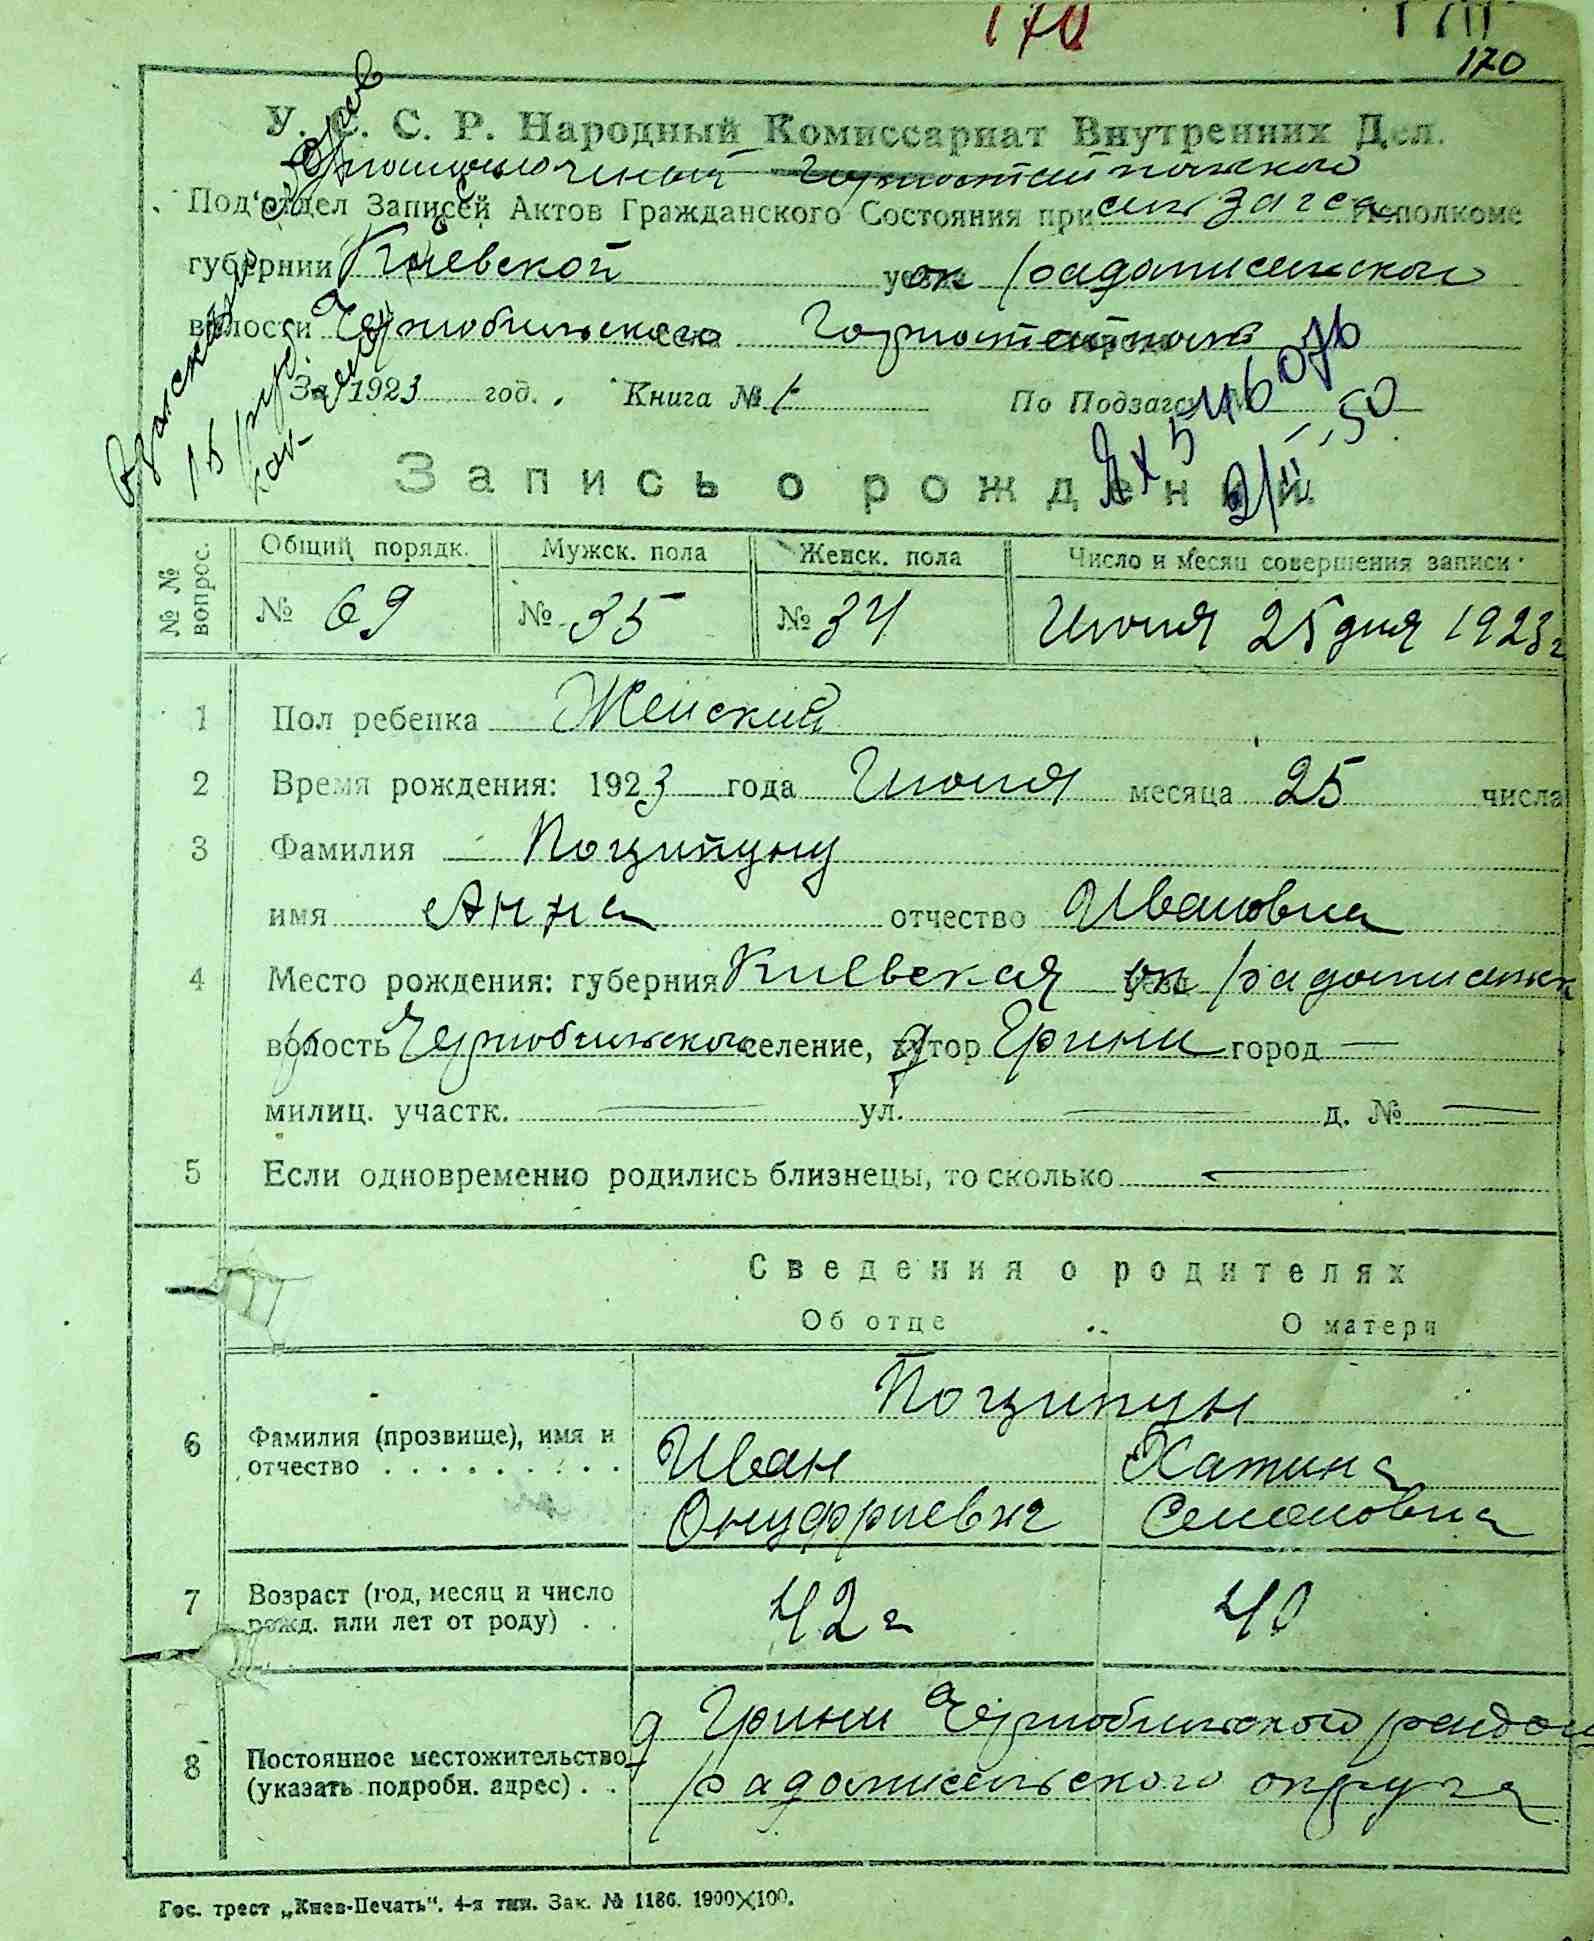 170
170
У. С. С. Р. Народный Комиссариат Внутренних Дел.
Под'отдел Записей Актов Гражданского Состояния при загса Исполкоме
губернии Киевской ок Радомисельского
волости Чернобильского села Горностайполь
За 1923 год. Книга № 1 По Подзагсу №
15 руб.
ЯХ 546076
Запись о рождении.
№ № вопрос.
Общий порядк. Мужск. пола Женск. пола Число и месяц совершения записи
№ 69 № 35 № 34 Июня 25 дня 1923 г
1 Пол ребенка Женский
2 Время рождения: 1923 года Июня месяца 25 числа
3 Фамилия Поципуну
имя Анна отчество Ивановна
4 Место рождения: губерния Киевская ок Радомисельск
волость Чернобильского селение, хутор Грини город —
милиц. участк. — ул. — д. № —
5 Если одновременно родились близнецы, то сколько —
Сведения о родителях
Об отце О матери
Поципун
6 Фамилия (прозвище), имя и отчество Иван Хатина
Онуфриевич Семеновна
7 Возраст (год, месяц и число рожд. или лет от роду) 42 г 40
8 Постоянное местожительство (указать подробн. адрес) д Грини Чернобильского района
Радомисельского округа
Гос. трест „Киев-Печать“. 4-я тип. Зак. № 1186. 1900×100.